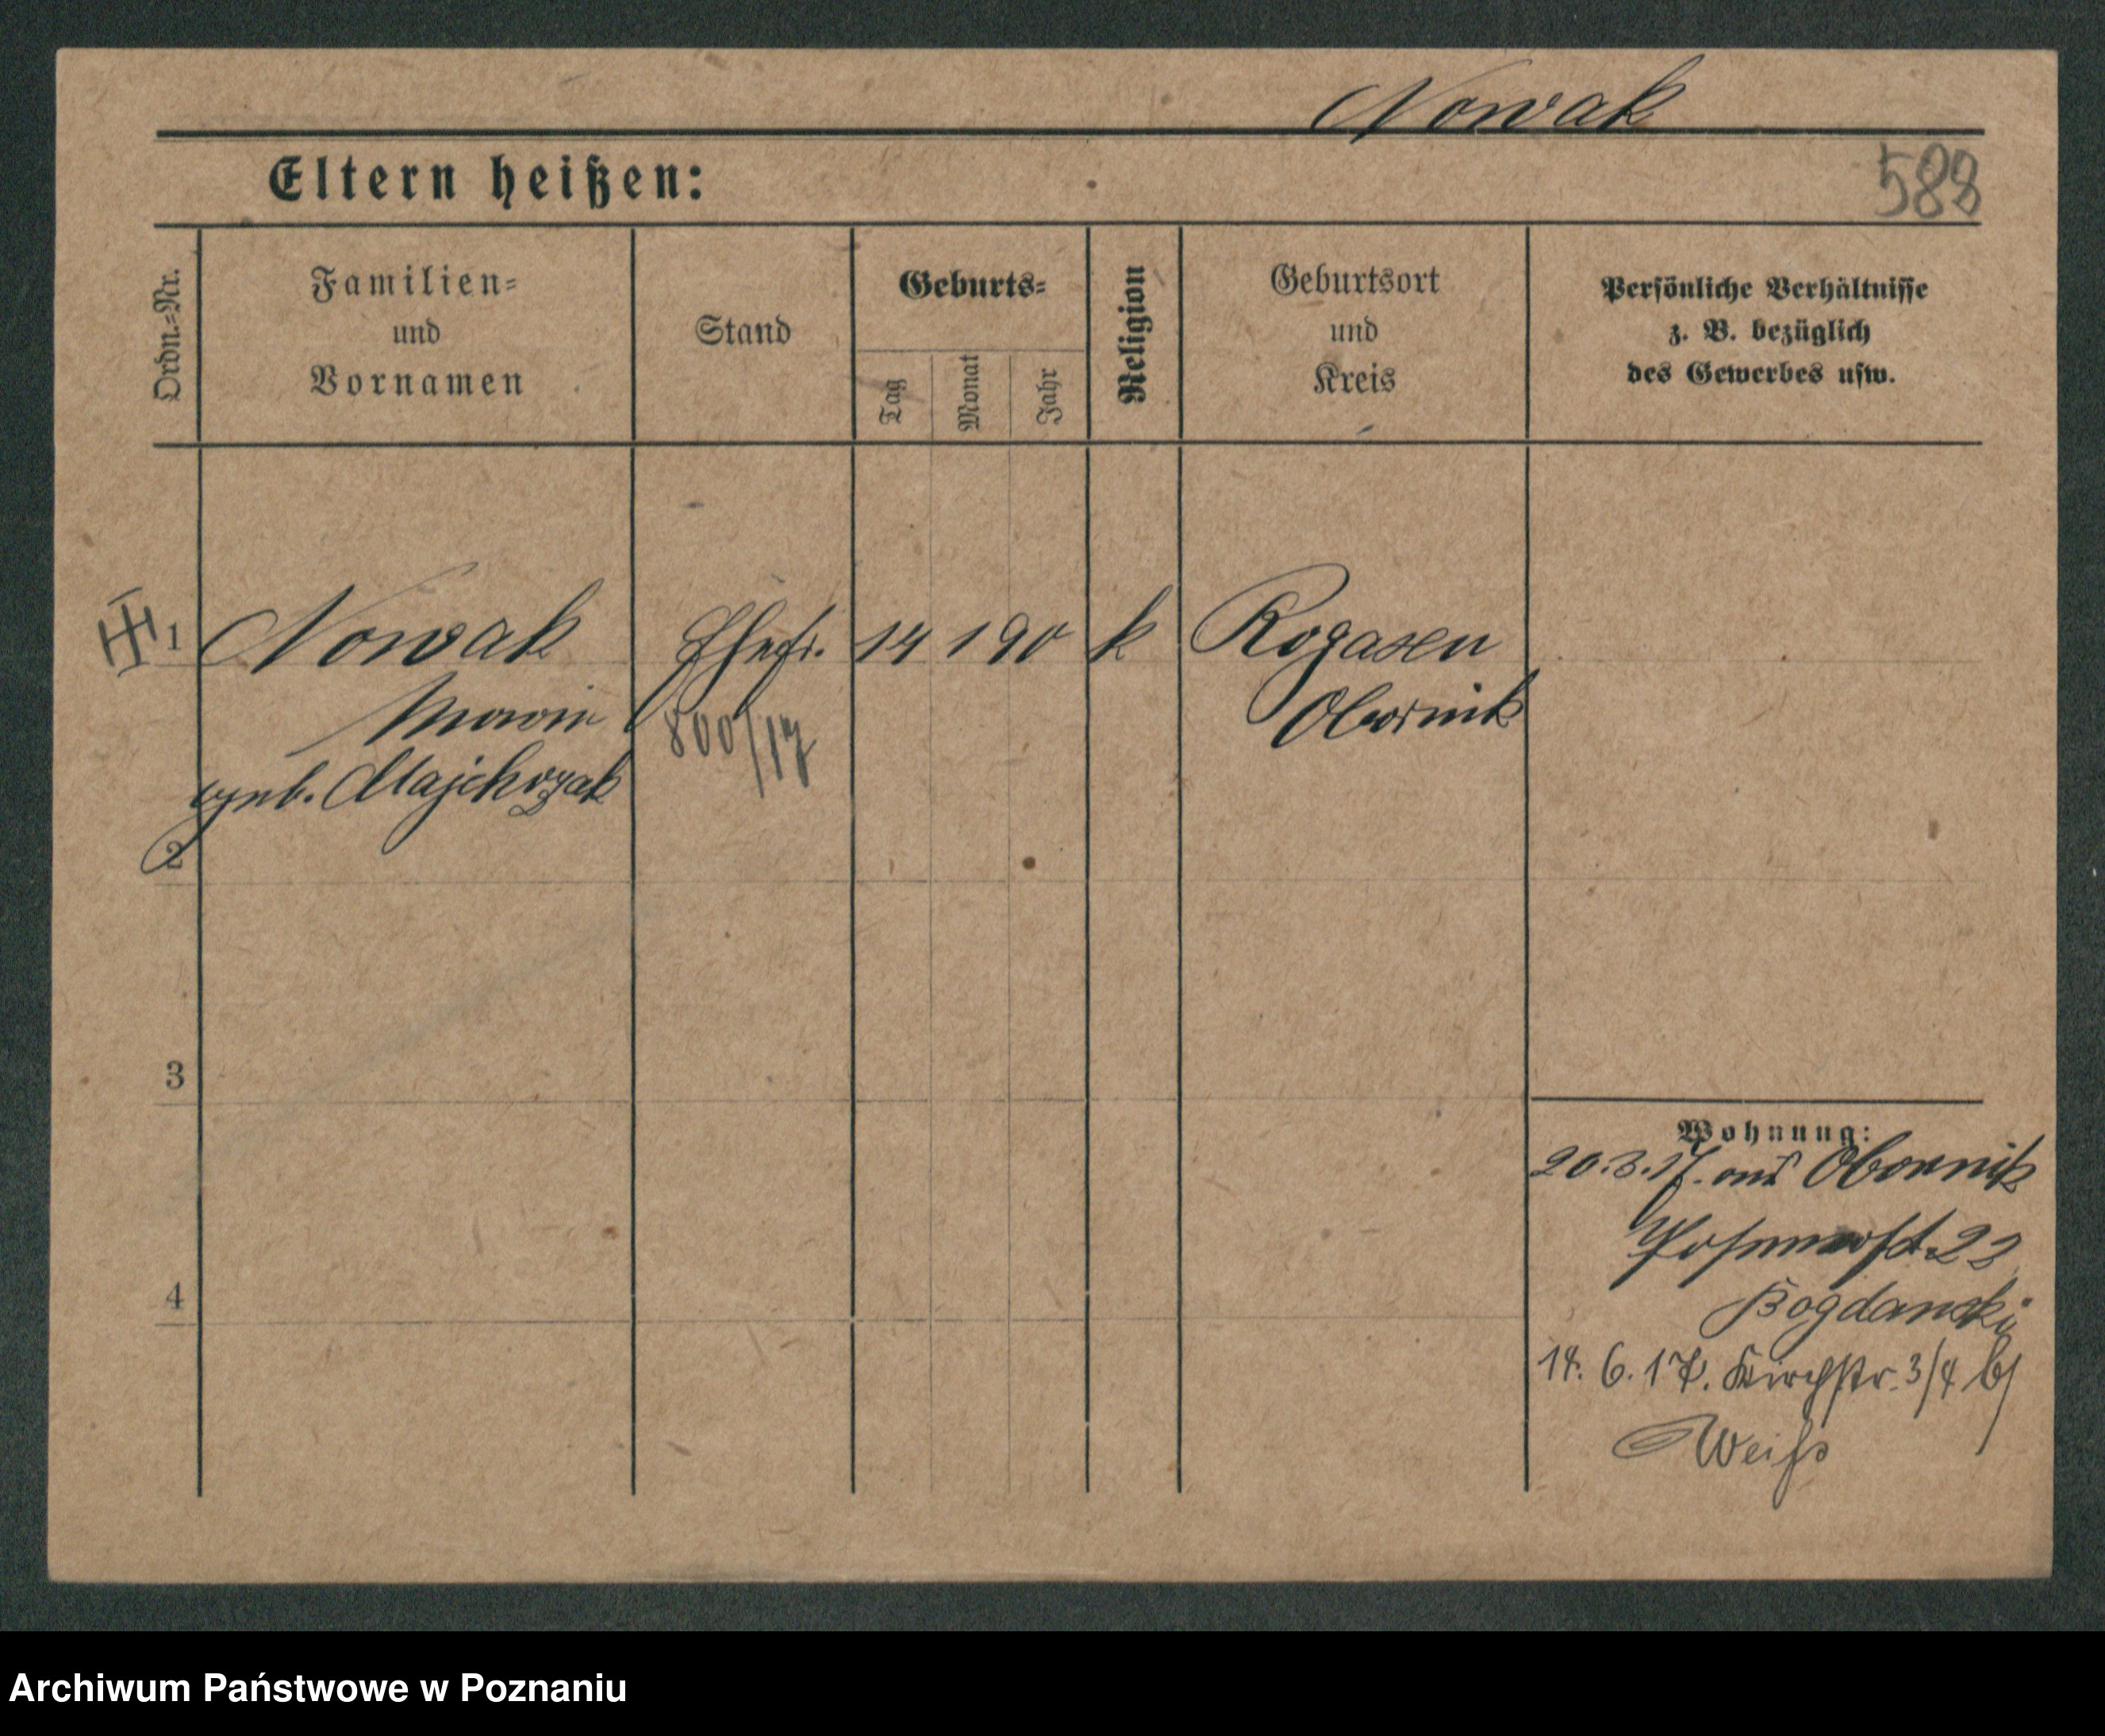 Nowak
Eltern heißen:
588
Ordn.-Nr.
Familien-
und
Vornamen
Stand
Geburts-
Tag
Monat
Jahr
Religion
Geburtsort
und
Kreis
Persönliche Verhältnisse
z. B. bezüglich
des Gewerbes usw.
1 Nowak Ehefr. 14 1 90 k Rogasen
Obornik
800/17
geb. Majchrzak
2
3
4
Wohnung:
20.3.17. aus Obornik
22
Bogdanski
14. 6. 17. Kirchstr. 3/4 b/
Weiß
Archiwum Państwowe w Poznaniu